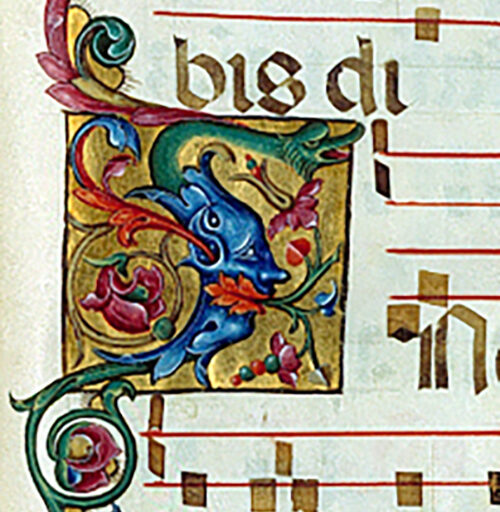 bis di